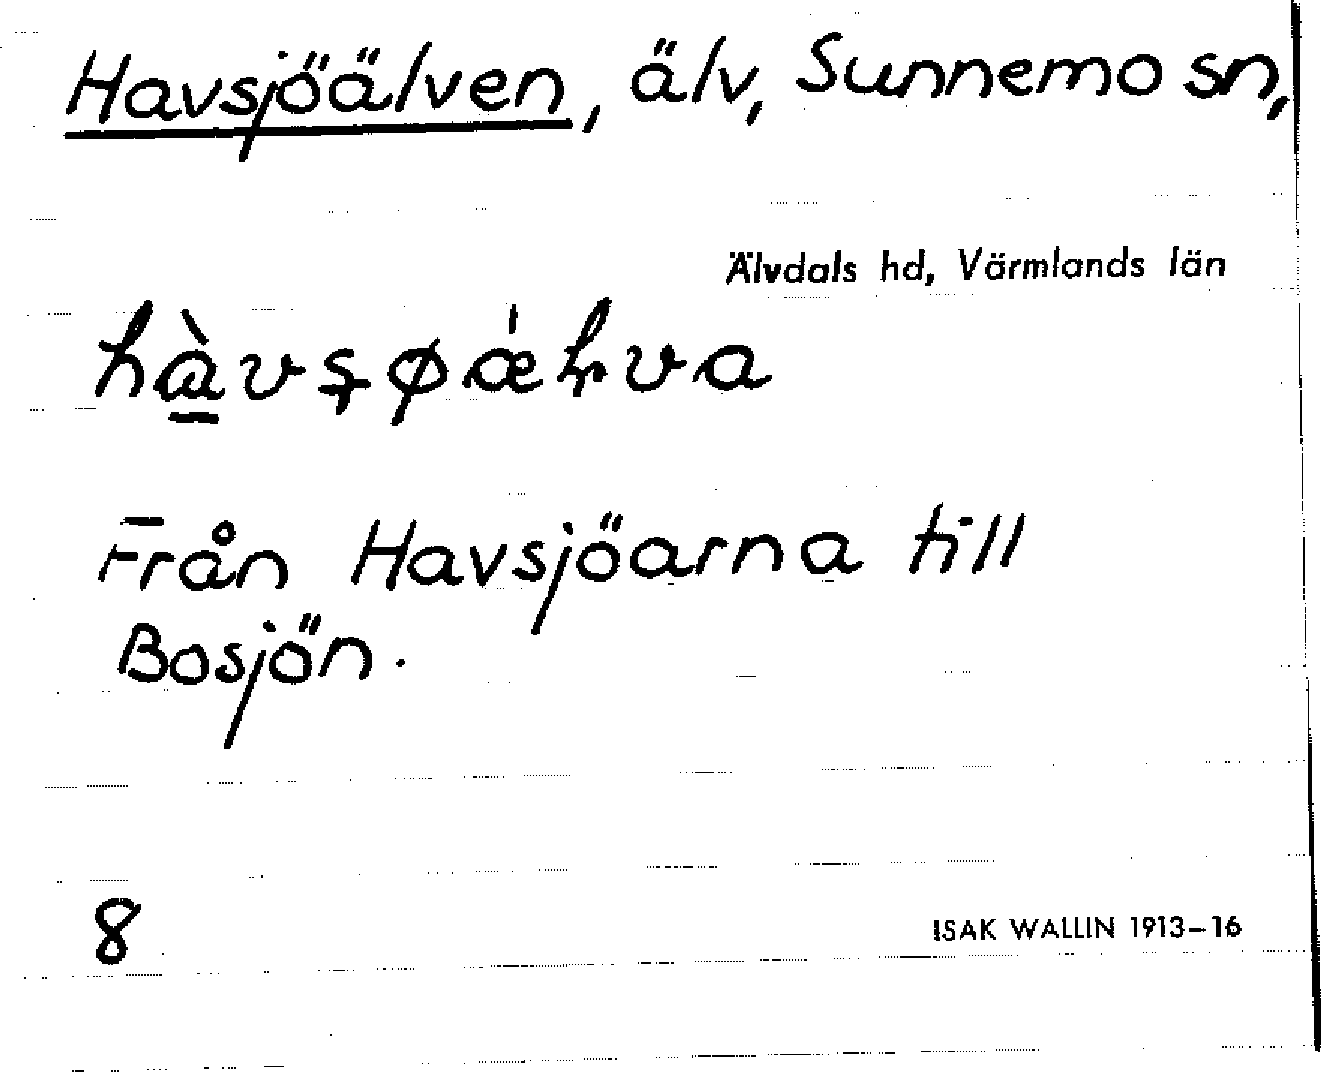 Havsjöälven, älv, Sunnemo sn,
Älvdals hd, Värmlands län
Från Havsjöarna till
Bosjön.
8
ISAK WALLIN 1913-16